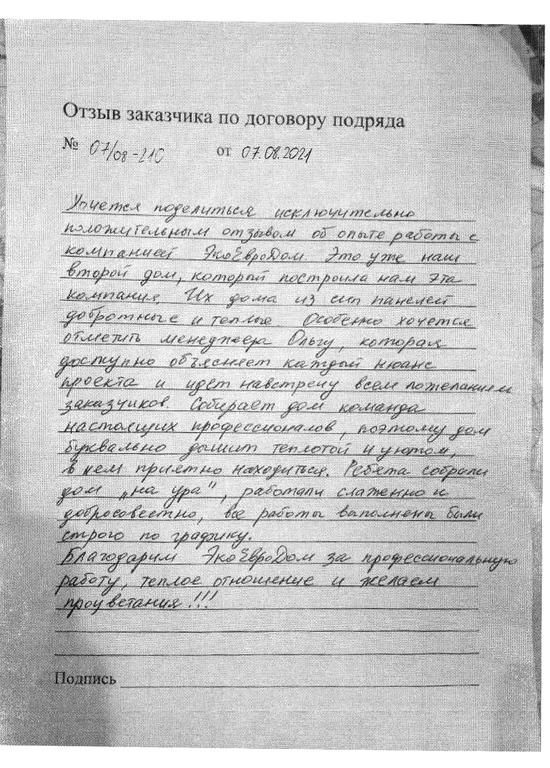 Отзыв заказчика по договору подряда
№ 07/08-210 от 07.08.2021
Хочется поделиться исключительно
положительным отзывом об опыте работы с
компанией ЭкоЕвроДом. Это уже наш
второй дом, который построила нам эта
компания. Их дома из сип панелей
добротные и теплые. Особенно хочется
отметить менеджера Ольгу, которая
доступно объясняет каждый нюанс
проекта и идет навстречу всем пожеланием
заказчиков. Собирает дом команда
настоящих профессионалов, поэтому дом
буквально дышит теплотой и уютом,
в нем приятно находиться. Ребята собрали
дом "на ура", работали слаженно и
добросовестно, все работы выполнены были
строго по графику.
Благодарим ЭкоЕвроДом за профессиональную
работу, теплое отношение и желаем
процветания!!!
Подпись